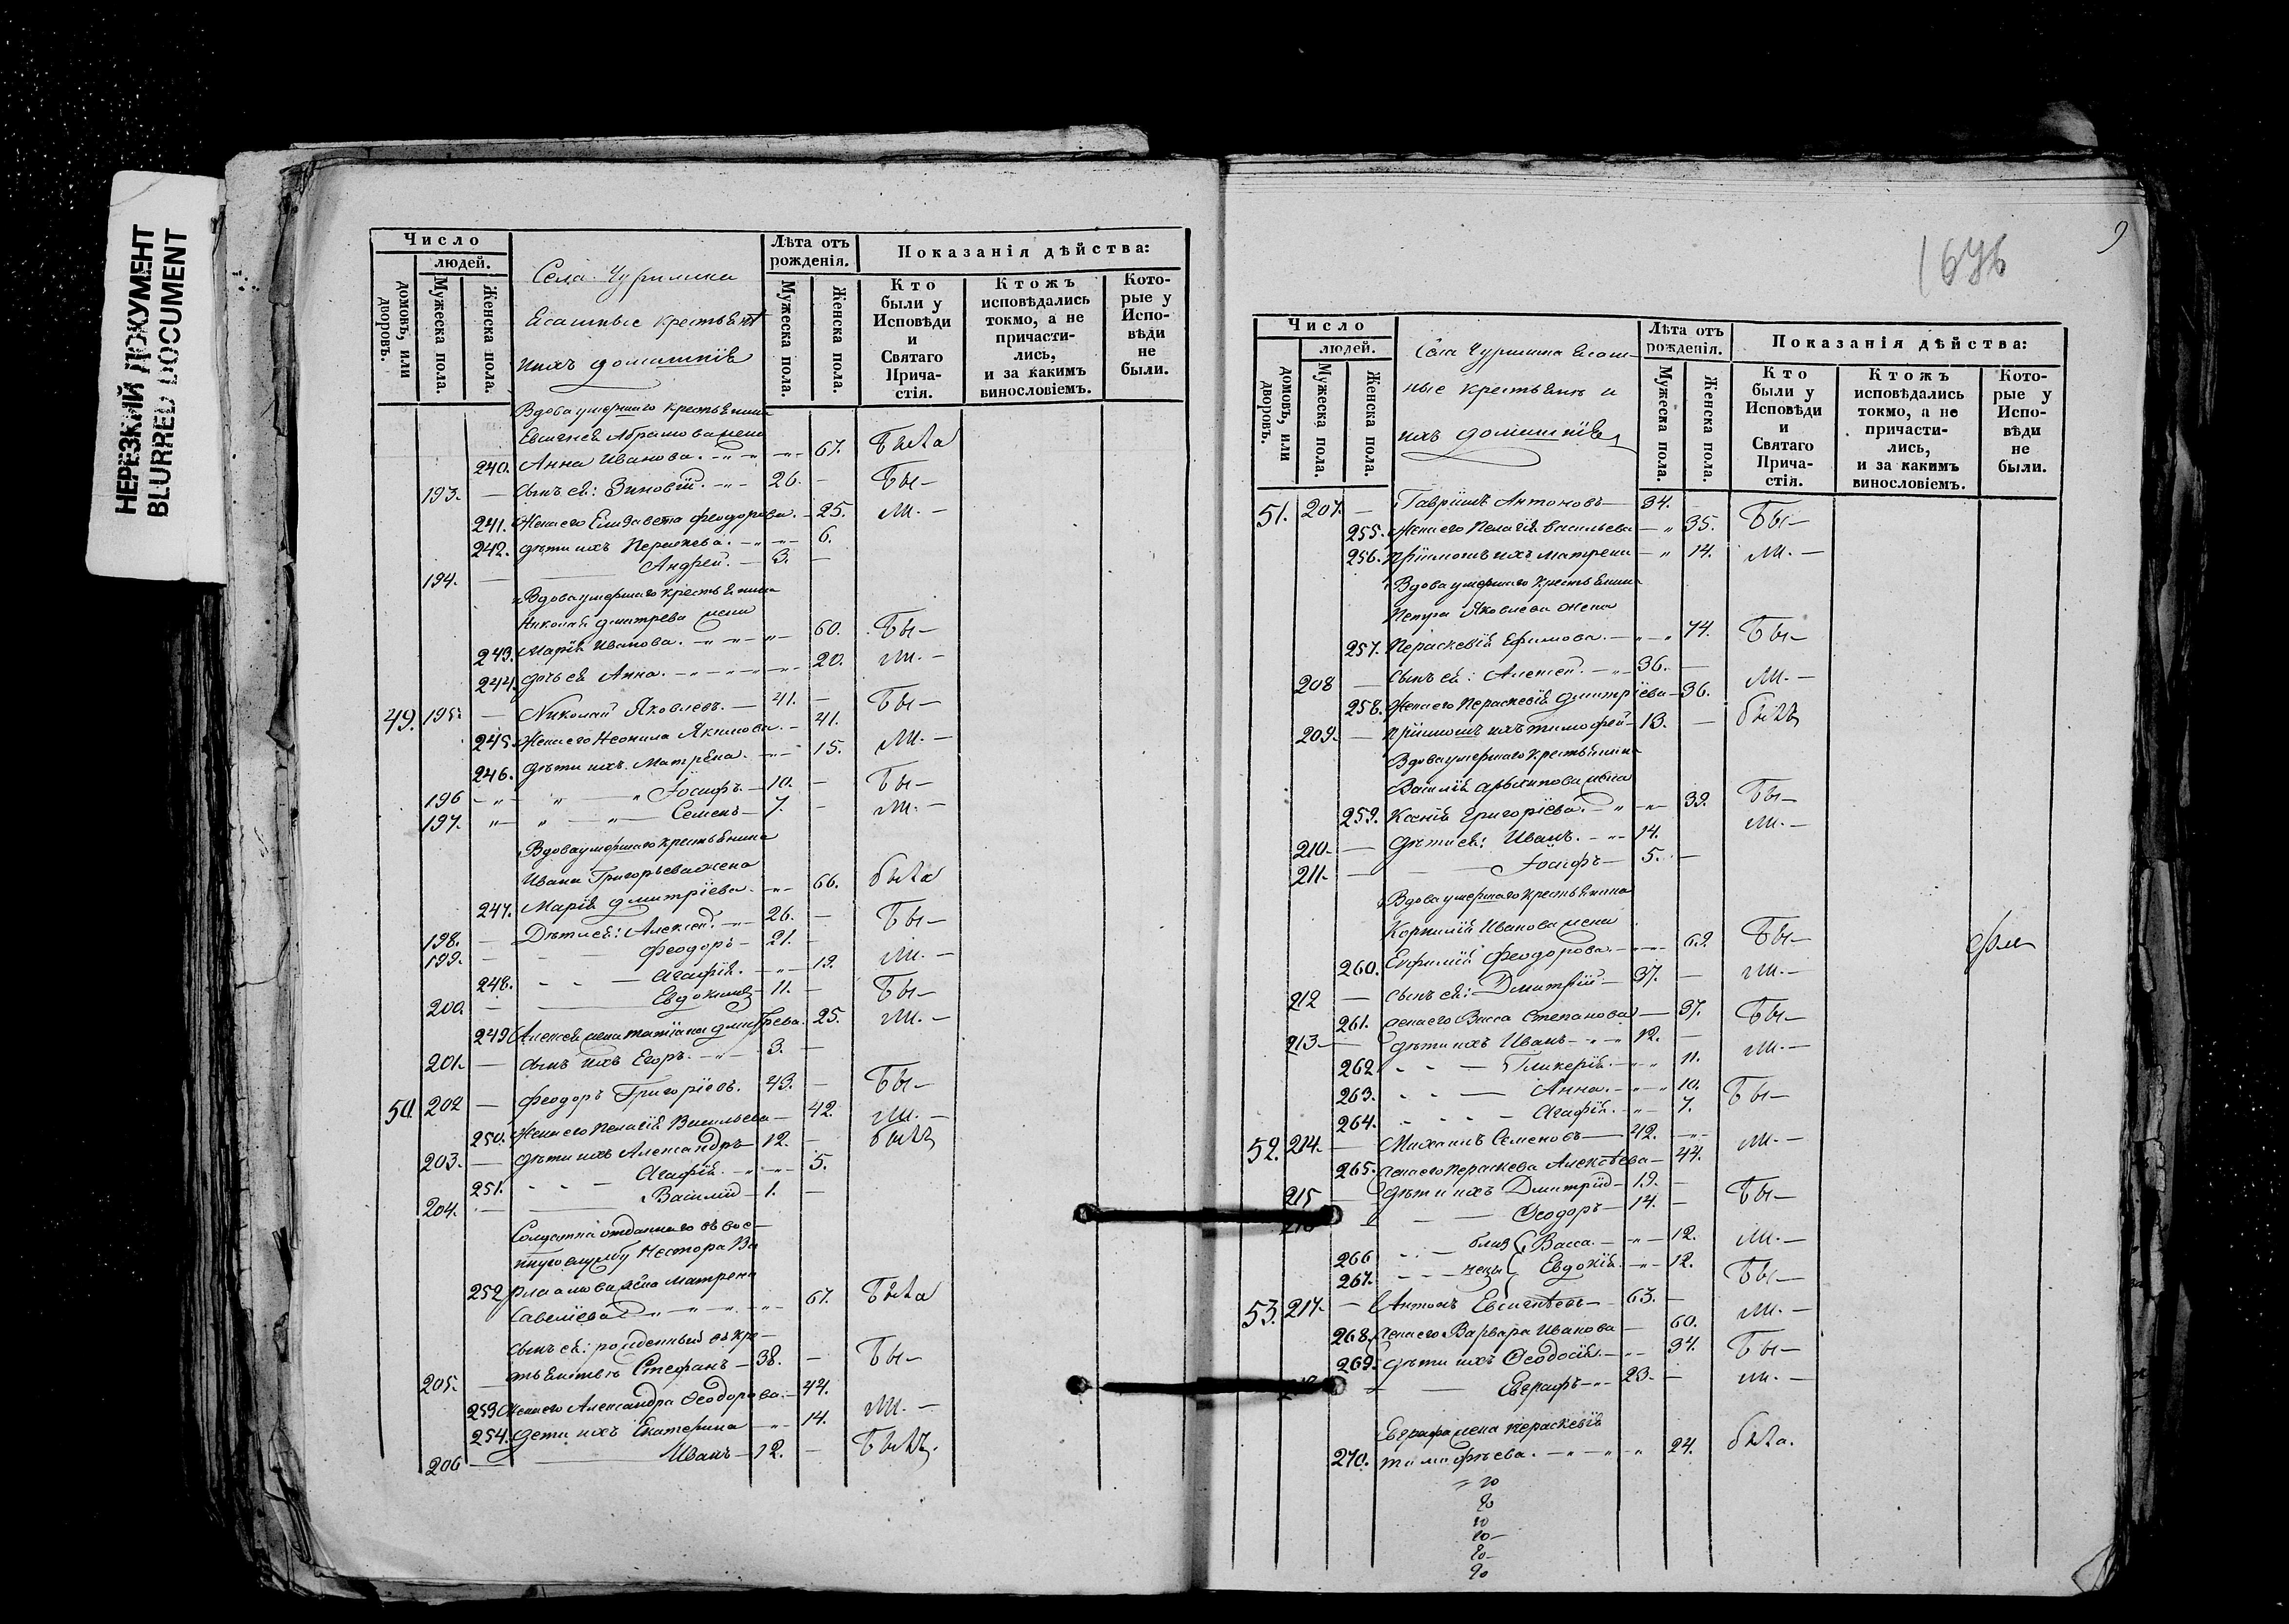 НЕРЕЗКИЙ ДОКУМЕНТ
BLURRED DOCUMENT
Число
людей.
домовъ, или дворовъ.
Мужеска пола.
Женска пола.
Села
Ясашные крестьяне
ихъ домашнiе
Лѣта отъ рожденiя.
Мужеска пола.
Женска пола.
Показанiя дѣйства:
Кто были у Исповѣди и Святаго Прича-стiя.
Ктожъ исповѣдались токмо, а не причасти-лись, и за какимъ винословiемъ.
Кото-рые у Испо-вѣди не были.
Вдова умершаго крестьянина
Евсигнея Абрамова жена
240. Анна Иванова. 67. Была
193. — сынъ ея: Зиновiй. 26. — Бы—
241. Жена его Елизавета Феодорова. — 25. ли. —
242. дѣти ихъ Параскева. 6.
194. — Андрей. — 3. —
Вдова умершаго крестьянина
Николая Дмитрева жена
243. Марiя Иванова. 60. Бы—
244. дочь ея Анна. 20. ли. —
49. 195. — Николай Яковлевъ. — 41. — Бы—
245. Жена его Неонила Якимова. — 41.
246. дѣти ихъ Матрена. 15. ли. —
196 Iосифъ. — 10. — Бы—
197. Семенъ — 7. — ли. —
Вдова умершаго крестьянина
Ивана Григорьева жена
247. Марiя Дмитрiева. 66. была
198. — Дѣти ея: Алексей. 26. — Бы—
199. — Феодоръ — 21. —
248. Агафiя. 19. ли. —
200. — Евдокимъ — 11. — Бы—
249. Алексея жена Татiана Дмитрева. 25. ли. —
201. — сынъ ихъ Егоръ. 3. —
50. 202 — Феодоръ Григорiевъ. 43. — Бы—
250. Жена его Пелагiя Васильева — 42. ли. —
203. — дѣти ихъ Александръ — 12. — былъ
251. Агафiя. 5.
204. — Василiй — 1. —
Солдатка отданнаго въ вое—
нную службу Нестора Ва
252 рламова жена Матрена
Савелiева 67. Была
сынъ ея: рожденный въ кре—
205. — стьянствѣ Стефанъ — 38. — Бы—
253 Жена его Александра Ѳеодорова. — 44. ли. —
254. дети ихъ Екатерина 14.
206 — Иванъ — 12. — Былъ.
9
Число
людей.
домовъ, или дворовъ.
Мужеска пола.
Женска пола.
Села
ные крестьянъ и
ихъ домашнiе
Лѣта отъ рожденiя.
Мужеска пола.
Женска пола.
Показанiя дѣйства:
Кто были у Исповѣди и Святаго Прича-стiя.
Ктожъ исповѣдались токмо, а не причасти-лись, и за какимъ винословiемъ.
Кото-рые у Испо-вѣди не были.
51. 207. — Гаврiилъ Антоновъ — 34. Бы—
255. Жена его Пелагiя Васильева — 35.
256. прiимошъ ихъ Матрена — 14. ли. —
Вдова умершаго крестьянина
Петра Яковлева жена
257. Параскевiя Ефимова. 74. Бы—
208 — сынъ ея: Алексей. 36. —
258. Жена его Параскевiя Дмитрiева — 36. ли. —
209. — прiимошъ ихъ Тимофей — 13. — былъ
Вдова умершаго крестьянина
Василiя Архипова жена
259. Ксенiя Григорiева. 39. Бы—
210. — дѣти ея: Иванъ. 14. ли. —
211. — Iосифъ — 5. —
Вдова умершаго крестьянина
Корнилiя Иванова жена
260. Евфимiя Феодорова. 69. Бы—
212 — сынъ ея: Дмитрiй — 37. — ли. —
261. жена его Васса Степанова — 37. Бы—
213. — дѣти ихъ Иванъ 12. —
262. Гликерiя. 11. ли. —
263. Анна. 10. Бы—
264. Агафiя. 7.
52. 214. — Михаилъ Семеновъ — 42. ли. —
265. жена его Параскева Алексѣева — 44.
215 — дѣти ихъ Дмитрiй — 19. —
216 — Ѳеодоръ — 14. — Бы—
266 близ Васса. 12. ли. —
267. нецы Евдокiя. 12. Бы—
53. 217. — Антонъ Евсигнѣевъ — 63. —
268. жена его Варвара Иванова — 60. ли. —
269. дѣти ихъ Ѳеодосiя. 34. Бы—
Евграфъ 23. — ли. —
Евграфа жена Параскевiя
270. Тимофѣева. 24. была.